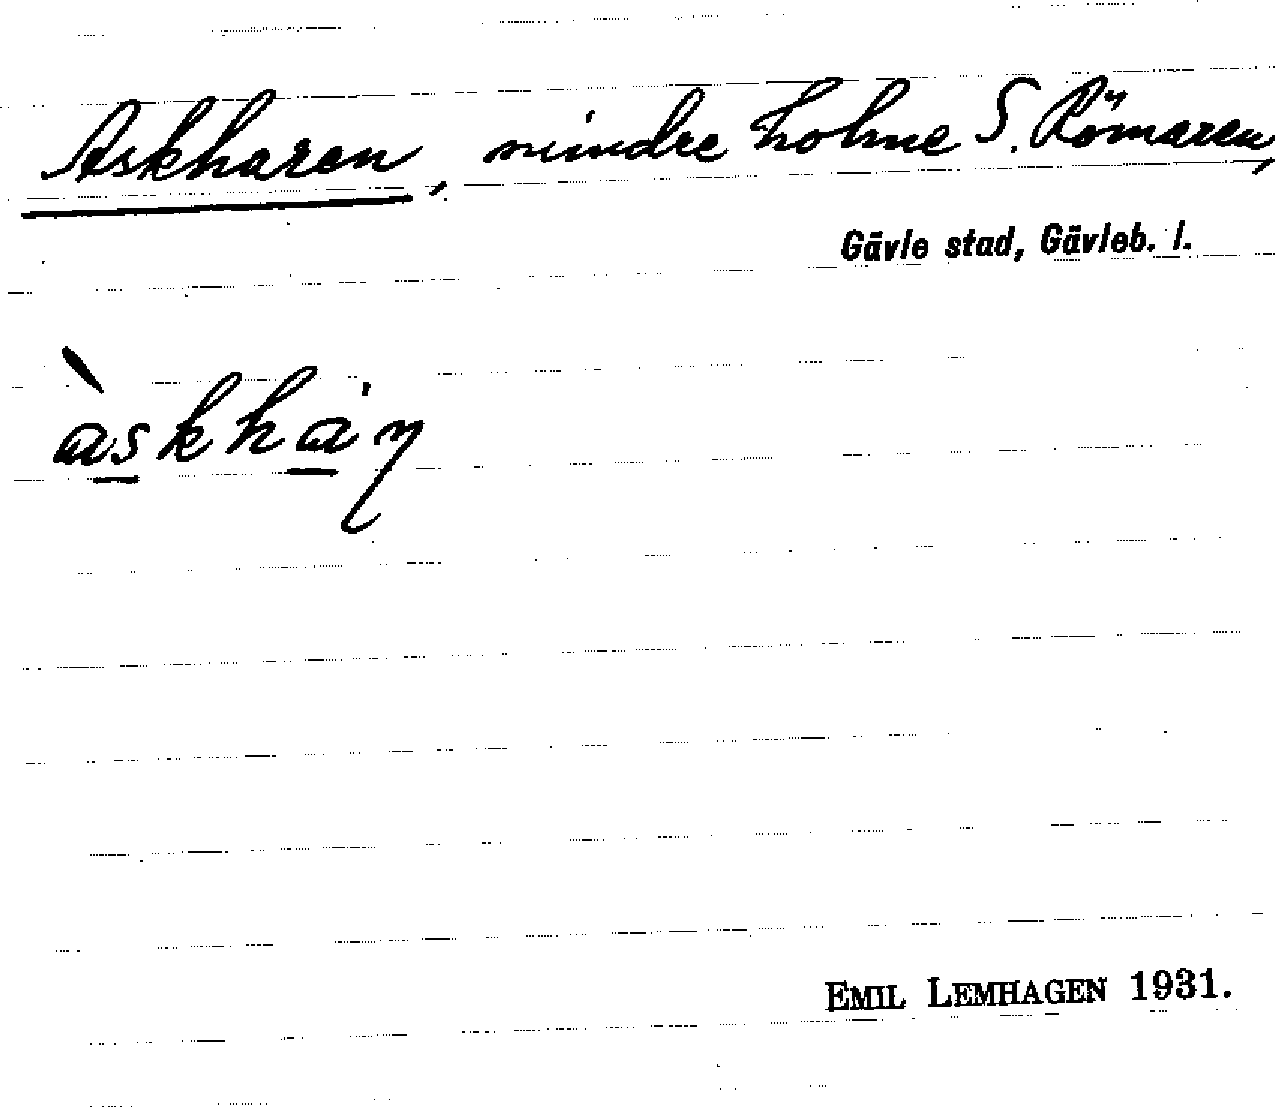 Askharen, mindre holme S. Römaren,
Gävle stad, Gävleb. l.
àskhàn
EMIL LEMHAGEN 1931.